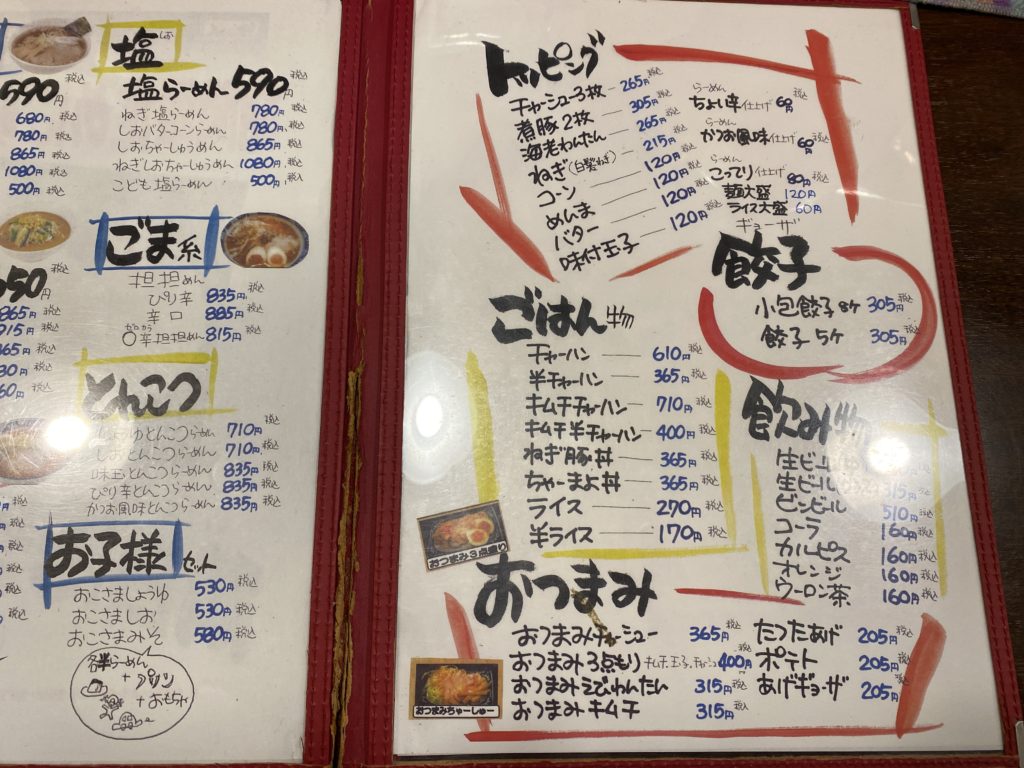 590円 税込
680円 税込
780円 税込
865円 税込
1080円 税込
500円 税込
塩 しお
塩らーめん 590円 税込
ねぎ塩らーめん 780円 税込
しおバターコーンらーめん 780円 税込
しおちゃーしゅうめん 865円 税込
ねぎしおちゃーしゅうめん 1080円 税込
こども塩らーめん 500円 税込
ごま系
担担めん
ぴり辛 835円 税込
辛口 885円 税込
0辛担担めん 815円 税込
とんこつ
しょうゆとんこつらーめん 710円 税込
しおとんこつらーめん 710円 税込
味玉とんこつらーめん 835円 税込
ぴり辛とんこつらーめん 835円 税込
かつお風味とんこつらーめん 835円 税込
お子様セット
おこさましょうゆ 530円 税込
おこさましお 530円 税込
おこさまみそ 580円 税込
各半らーめん
+プリン
+おもちゃ
トッピング
チャーシュー3枚 265円 税込
煮豚2枚 305円 税込
海老わんたん 265円 税込
ねぎ(白髪ねぎ) 215円 税込
コーン 120円 税込
めんま 120円 税込
バター 120円 税込
味付玉子 120円 税込
らーめん
ちょい辛仕上げ 60円 税込
らーめん
かつお風味仕上げ 60円 税込
らーめん
こってり仕上げ 80円 税込
麺大盛 120円
ライス大盛 60円
ギョーザ
餃子
小包餃子8ケ 305円 税込
餃子5ケ 305円 税込
ごはん物
チャーハン 610円 税込
半チャーハン 365円 税込
キムチチャーハン 710円 税込
キムチ半チャーハン 400円 税込
ねぎ豚丼 365円 税込
ちゃーまよ丼 365円 税込
ライス 270円 税込
半ライス 170円 税込
飲み物
生ビール
生ビール 315円
ビンビール 510円
コーラ 160円 税込
カルピス 160円 税込
オレンジ 160円 税込
ウーロン茶 160円 税込
おつまみ3点盛り
おつまみ
おつまみチャーシュー 365円 税込
おつまみ3点もり キムチ、玉子、チャーシュ 400円 税込
おつまみえびわんたん 315円 税込
おつまみキムチ 315円 税込
たつたあげ 205円 税込
ポテト 205円 税込
あげギョーザ 205円 税込
おつまみちゃーしゅー